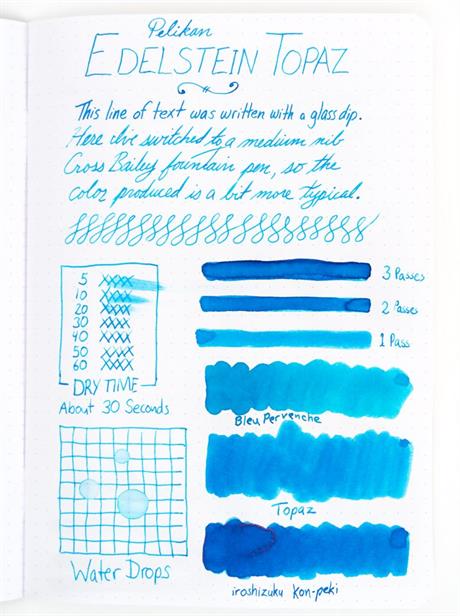 Pelikan
EDELSTEIN TOPAZ
This line of text was written with a glass dip.
Here I've switched to a medium nib
Cross Bailey fountain pen, so the
color produced is a bit more typical.
5 XXXX
10 XXXX
20 XXXX
30 XXXX
40 XXXX
50 XXXX
60 XXXX
DRY TIME
About 30 Seconds
Water Drops
3 Passes
2 Passes
1 Pass
Bleu Pervenche
Topaz
iroshizuku Kon-peki